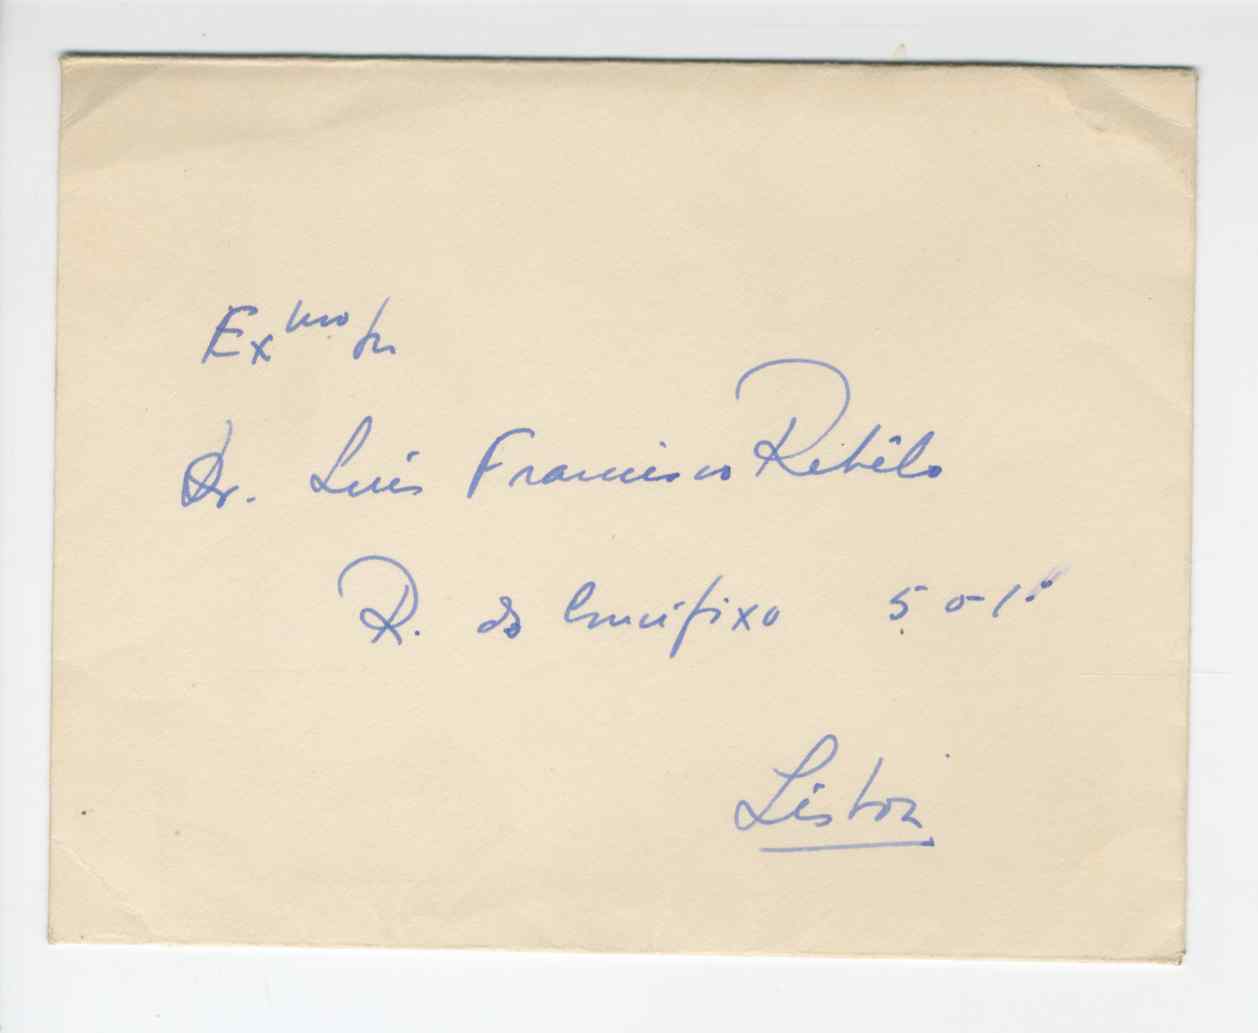 Exmo Sr
Dr. Luís Francisco Rebêlo
R. do Crucifixo 50-1º
Lisboa